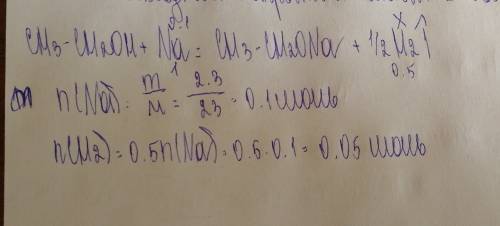 CH3-CH2OH + Na = CH3-CH2ONa + 1/2 H2↑
x
1
0.5
n(Na) = m/M = 2.3/23 = 0.1 моль
n(H2) = 0.5n(Na) = 0.5·0.1 = 0.05 моль